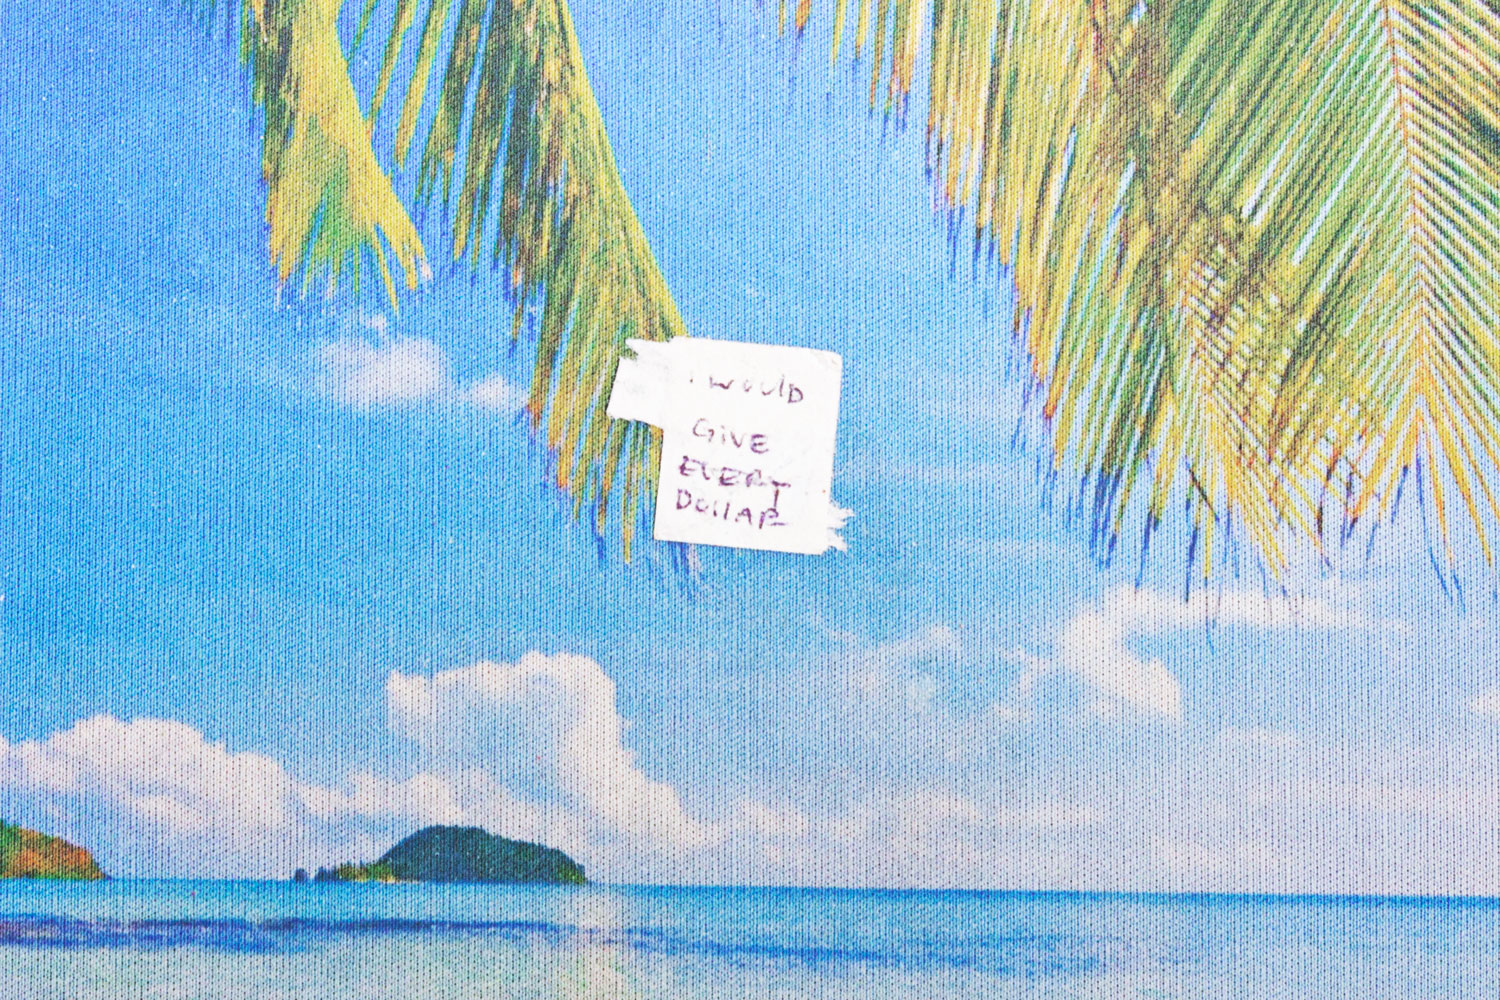 I WOULD
GIVE
EVERY
DOllAR